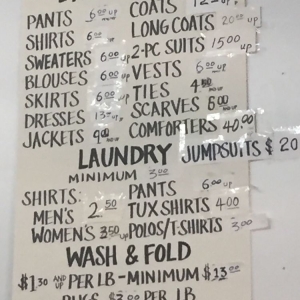 COATS 12.00 UP
PANTS 6.00 UP LONG COATS 20.00 UP
SHIRTS 6.00 2-PC SUITS 15.00 UP
SWEATERS 6.00 UP VESTS 6.00 UP
BLOUSES 6.00 UP TIES 4.50
SKIRTS 6.00 UP SCARVES 6.00
DRESSES 13.00 UP COMFORTERS 40.00
JACKETS 9.00
LAUNDRY JUMPSUITS $20
MINIMUM 3.00
SHIRTS: PANTS 6.00 UP
MEN'S 2.50 TUX SHIRTS 4.00
WOMEN'S 3.50 UP POLOS/T-SHIRTS 3.00
WASH & FOLD
$1.30 AND UP PER LB - MINIMUM $13.00
RUGS $3.00 PER LB